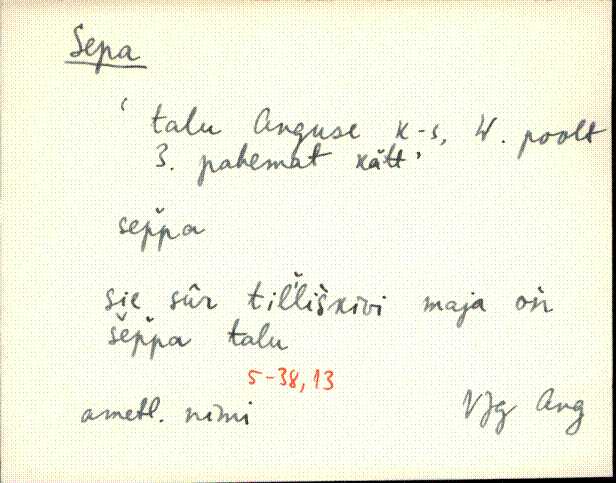 Sepa
‘talu Anguse k-s, W. poolt
3. pahemat kätt’
sep̌pa
sie sûr til̆liškivi maja on
šep̌pa talu
5-38, 13
ametl. nimi VJg Ang